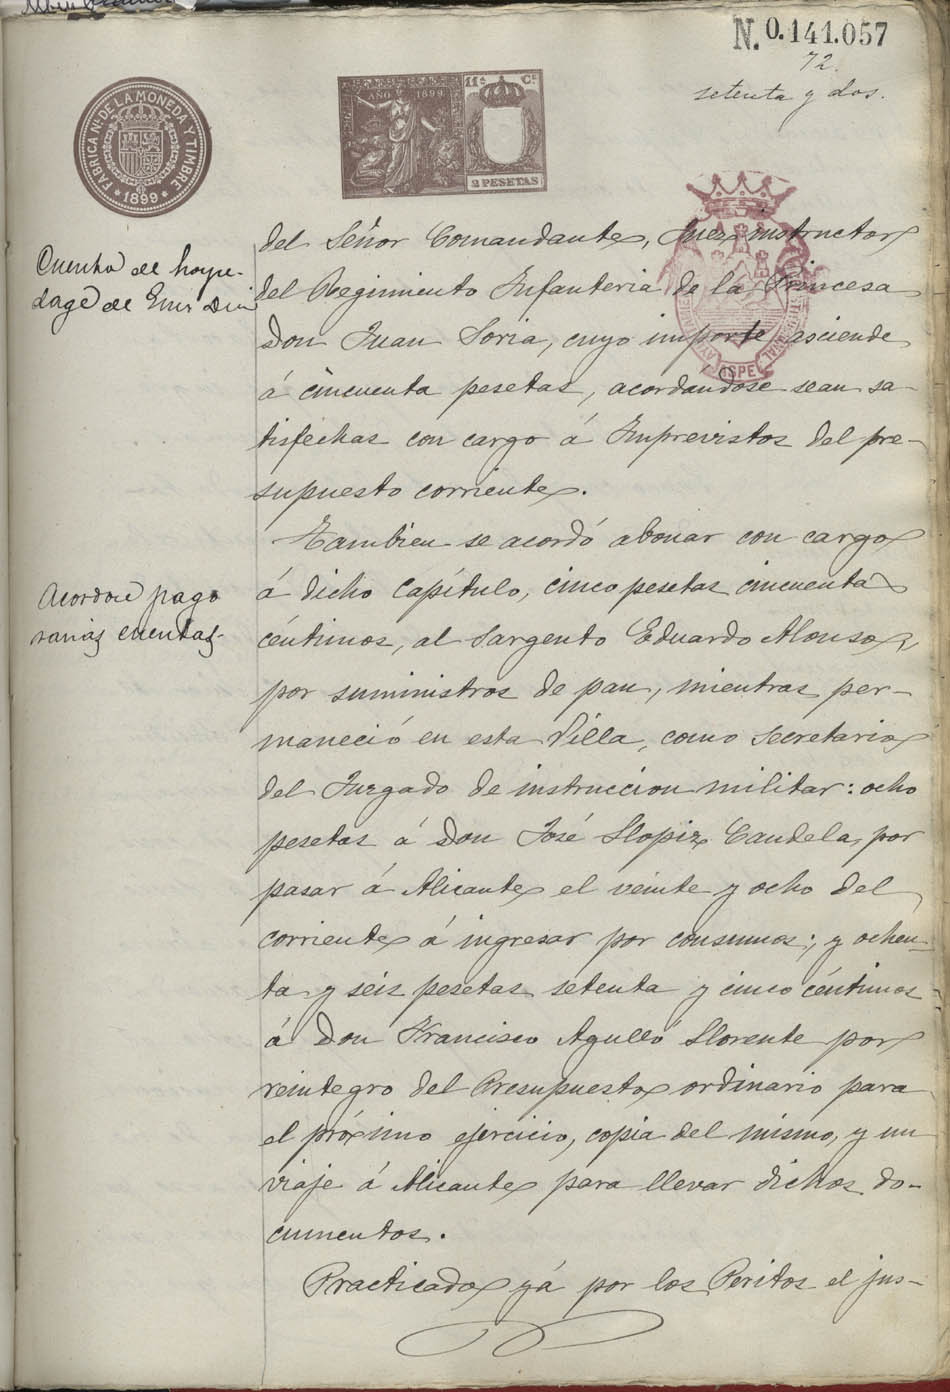 N. 0.141.057
72.
setenta y dos.
FABRICA Nl. DE LA MONEDA Y TIMBRE
1899
AÑO 1899
11ª Cl.
2 PESETAS
Cuenta de hospe-
dage de
del Señor Comandante, Juez instructor
del Regimiento Infanteria de la Princesa
Don Juan Soria, cuyo importe asciende
á cincuenta pesetas, acordandose sean sa-
tisfechas con cargo á Imprevistos del pre-
supuesto corriente.
Tambien se acordó abonar con cargo
Acordose pago
varias cuentas.
á dicho Capítulo, cinco pesetas cincuenta
céntimos, al Sargento Eduardo Alonso,
por suministros de pan, mientras per-
maneció en esta Villa, como Secretario
del Juzgado de instruccion militar: ocho
pesetas á Don José Llopiz Candela, por
pasar á Alicante el veinte y ocho del
corriente á ingresar por consumos; y ochen-
ta y seis pesetas setenta y cinco céntimos
á Don Francisco Agulló Llorente por
reintegro del Presupuesto ordinario para
el próximo ejercicio, copia del mismo, y un
viaje á Alicante para llevar dichos do-
cumentos.
Practicado yá por los Peritos el jus-